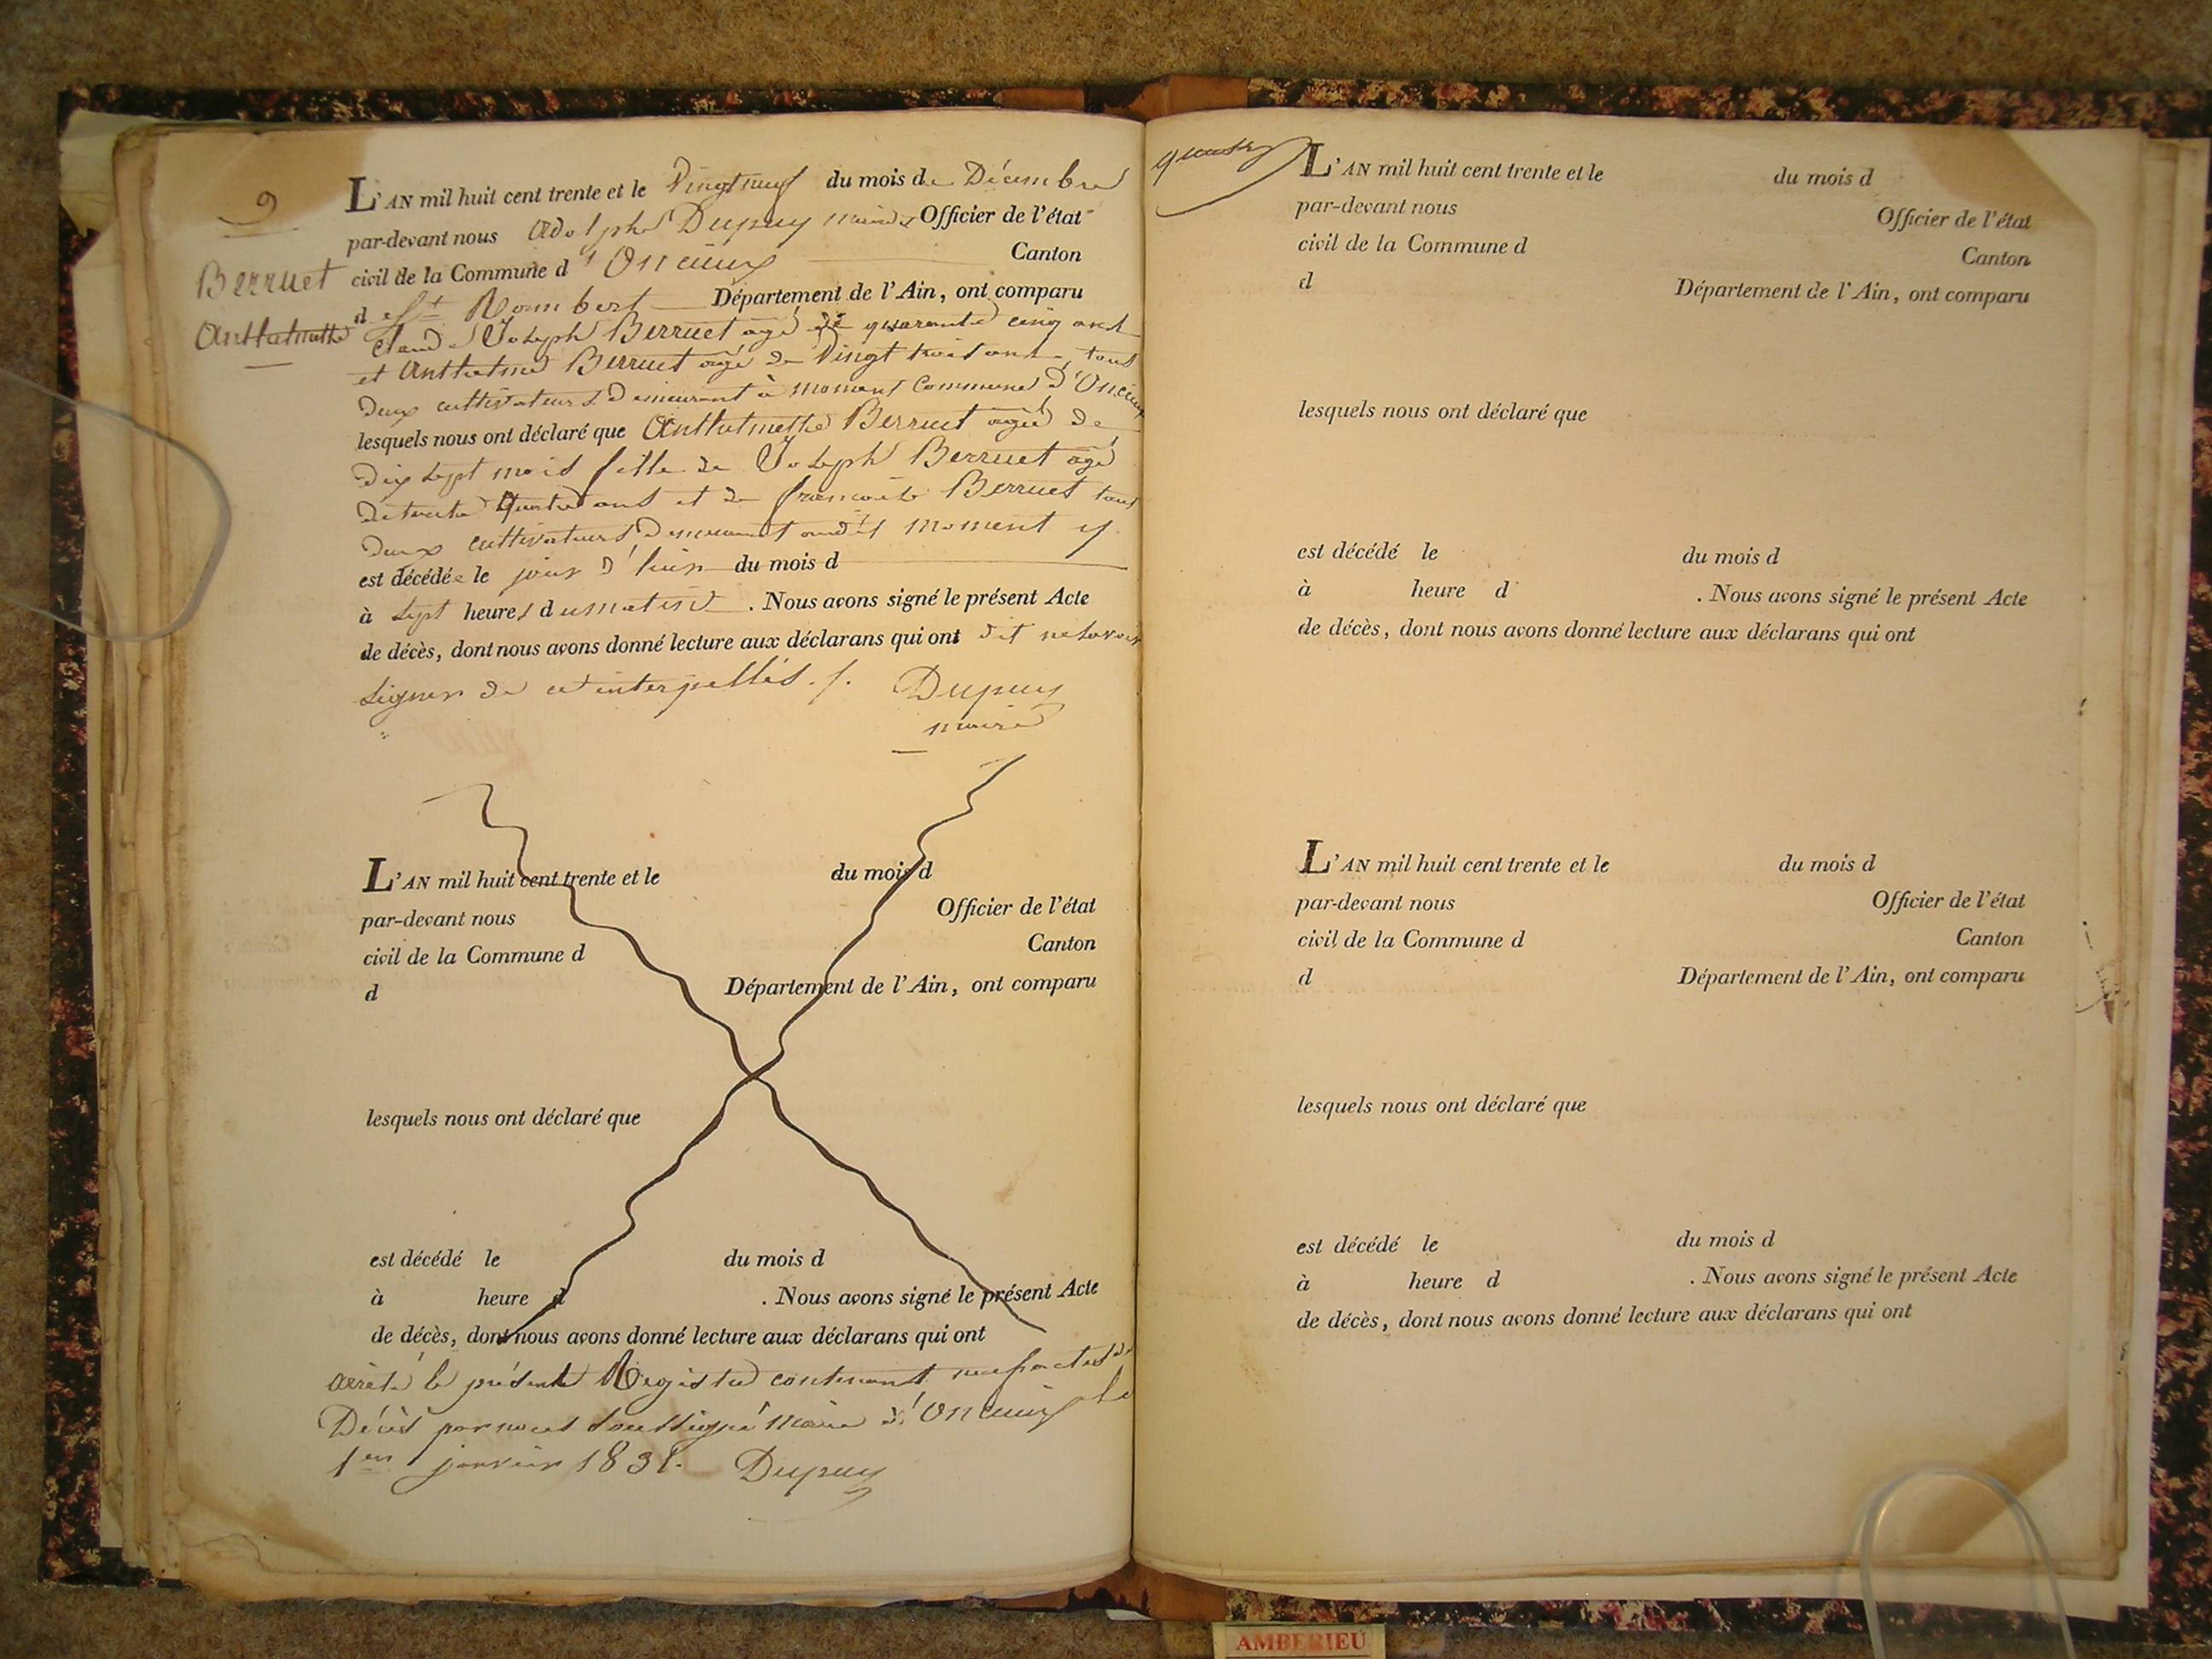 9
Berruet
Anthelmette
L'AN mil huit cent trente et le Vingt neuf du mois de Décembre
par-devant nous Adolphe Dupuy maire Officier de l'état
civil de la Commune d'Oncieux Canton
d St Rambert Département de l'Ain, ont comparu
Claude Joseph Berruet agé de quarante cinq ans
et Anthelme Berruet agé de Vingt trois ans, tous
deux cultivateurs demeurant à moment Commune d'Oncieux
lesquels nous ont déclaré que Anthelmette Berruet agée de
dix sept mois fille de Joseph Berruet agé
de trente Quatre ans et de francoise Berruet tous
deux cultivateurs demeurant audit moment y
est décédée le jour d'hier du mois d
à sept heures du matin. Nous avons signé le présent Acte
de décès, dont nous avons donné lecture aux déclarans qui ont dit ne savoir
signer de ce interpellés ./.
Dupuy
maire
L'AN mil huit cent trente et le du mois d
par-devant nous Officier de l'état
civil de la Commune d Canton
d Département de l'Ain, ont comparu
lesquels nous ont déclaré que
est décédé le du mois d
à heure d . Nous avons signé le présent Acte
de décès, dont nous avons donné lecture aux déclarans qui ont
arrêté le présent Registre contenant neuf actes de
Décès par nous soussigné maire d'Oncieux le
1er janvier 1831. Dupuy
L'AN mil huit cent trente et le du mois d
par-devant nous Officier de l'état
civil de la Commune d Canton
d Département de l'Ain, ont comparu
lesquels nous ont déclaré que
est décédé le du mois d
à heure d . Nous avons signé le présent Acte
de décès, dont nous avons donné lecture aux déclarans qui ont
L'AN mil huit cent trente et le du mois d
par-devant nous Officier de l'état
civil de la Commune d Canton
d Département de l'Ain, ont comparu
lesquels nous ont déclaré que
est décédé le du mois d
à heure d . Nous avons signé le présent Acte
de décès, dont nous avons donné lecture aux déclarans qui ont
AMBERIEU